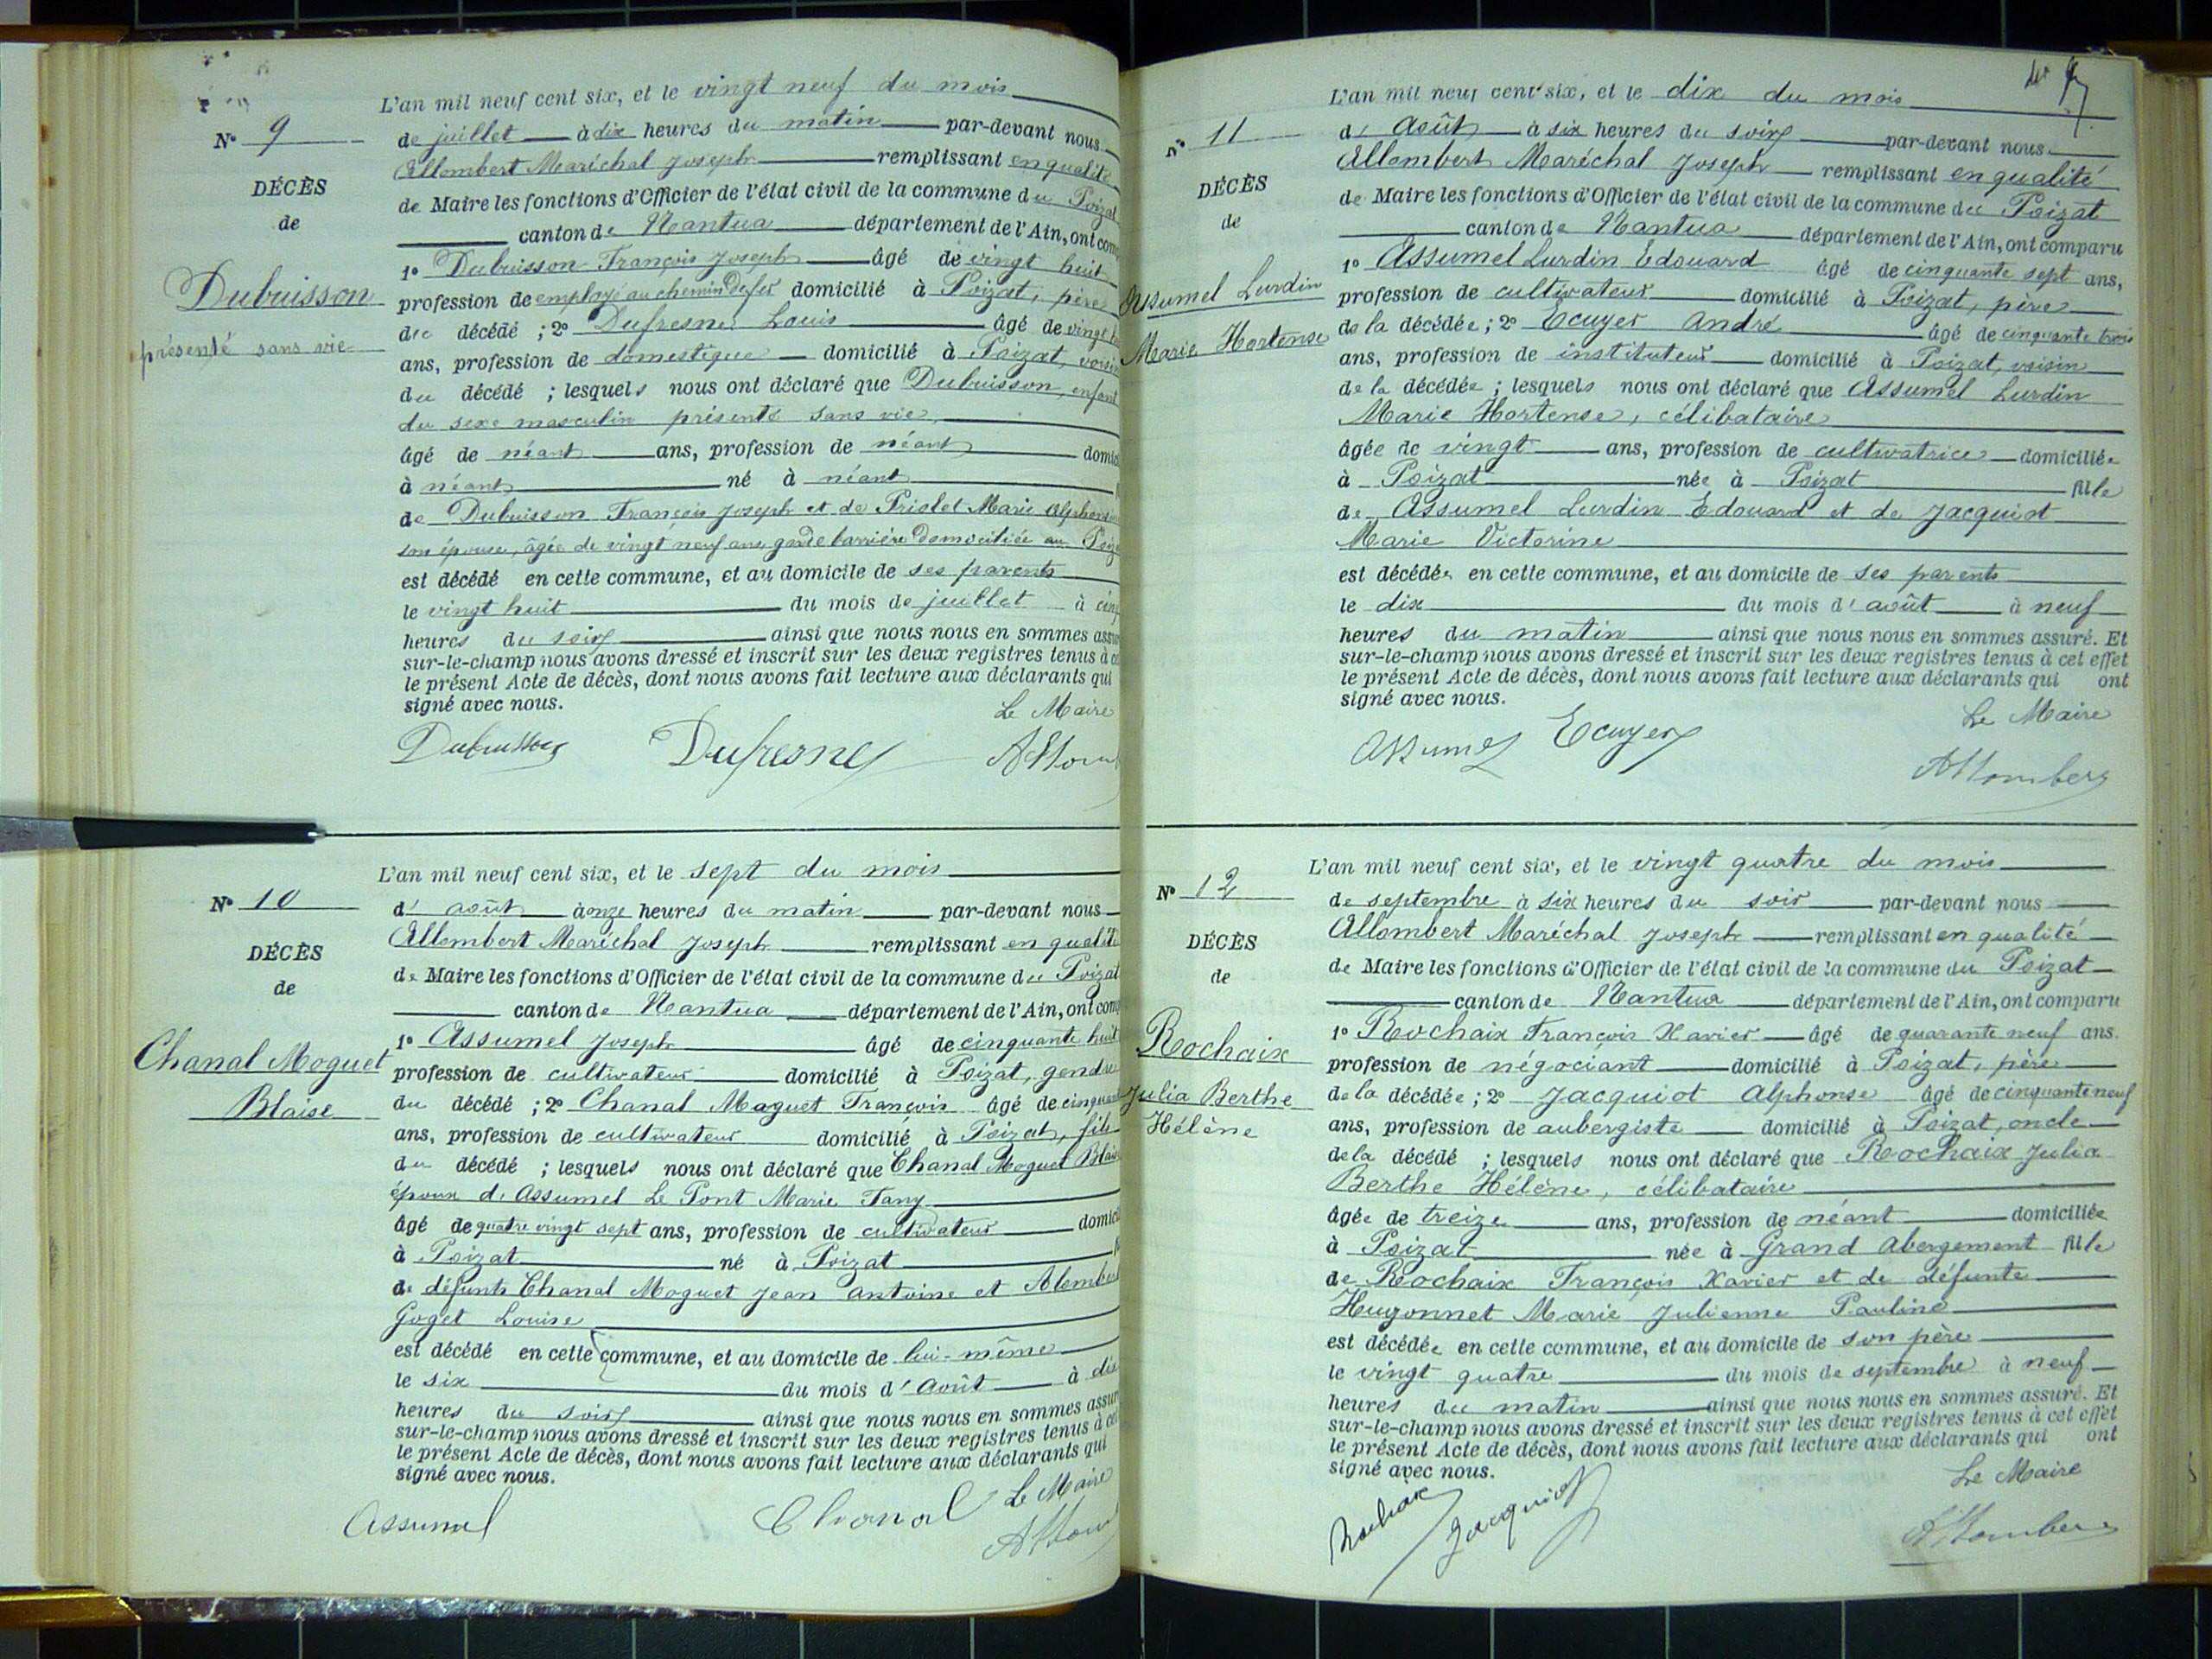 N° 9
DÉCÈS
de
Dubuisson
présenté sans vie
L'an mil neuf cent six, et le vingt neuf du mois
de juillet à dix heures du matin par-devant nous
Allombert Maréchal Joseph remplissant en qualité
de Maire les fonctions d'Officier de l'état civil de la commune du Poizat
canton de Nantua département de l'Ain, ont com
1° Dubuisson François Joseph âgé de vingt huit
profession de employé au chemin de fer domicilié à Poizat, père
du décédé ; 2° Dufresne Louis âgé de vingt
ans, profession de domestique domicilié à Poizat, voisin
du décédé ; lesquels nous ont déclaré que Dubuisson, enfant
du sexe masculin présenté sans vie,
âgé de néant ans, profession de néant domici
à néant né à néant
de Dubuisson François Joseph et de Priolet Marie Alphonsine
son épouse, âgée de vingt neuf ans, garde barrière domiciliée au Poizat
est décédé en cette commune, et au domicile de ses parents
le vingt huit du mois de juillet à cinq
heures du soir ainsi que nous nous en sommes assuré
sur-le-champ nous avons dressé et inscrit sur les deux registres tenus à ce
le présent Acte de décès, dont nous avons fait lecture aux déclarants qui
signé avec nous.
Le Maire
Dubuisson Dufresne Allomb
N° 10
DÉCÈS
de
Chanal Moguet
Blaise
L'an mil neuf cent six, et le sept du mois
d'août à onze heures du matin par-devant nous
Allombert Maréchal Joseph remplissant en qualité
de Maire les fonctions d'Officier de l'état civil de la commune du Poizat
canton de Nantua département de l'Ain, ont com
1° Assumel Joseph âgé de cinquante huit
profession de cultivateur domicilié à Poizat, gendre
du décédé ; 2° Chanal Moguet François âgé de cinquante
ans, profession de cultivateur domicilié à Poizat, fils
du décédé ; lesquels nous ont déclaré que Chanal Moguet Blaise
époux d'Assumel Le Pont Marie Fany
âgé de quatre vingt sept ans, profession de cultivateur domici
à Poizat né à Poizat
de défunts Chanal Moguet Jean Antoine et Alombert
Goget Louise
est décédé en cette commune, et au domicile de lui-même
le six du mois d'août à dix
heures du soir ainsi que nous nous en sommes assuré
sur-le-champ nous avons dressé et inscrit sur les deux registres tenus à cet
le présent Acte de décès, dont nous avons fait lecture aux déclarants qui
signé avec nous.
Le Maire
Assumel Chanal Allomb
N° 11
DÉCÈS
de
Assumel Lurdin
Marie Hortense
L'an mil neuf cent six, et le dix du mois
d'août à six heures du soir par-devant nous
Allombert Maréchal Joseph remplissant en qualité
de Maire les fonctions d'Officier de l'état civil de la commune du Poizat
canton de Nantua département de l'Ain, ont comparu
1° Assumel Lurdin Edouard âgé de cinquante sept ans,
profession de cultivateur domicilié à Poizat, père
de la décédée ; 2° Ecuyer André âgé de cinquante trois
ans, profession de instituteur domicilié à Poizat, voisin
de la décédée ; lesquels nous ont déclaré que Assumel Lurdin
Marie Hortense, célibataire
âgée de vingt ans, profession de cultivatrice domiciliée
à Poizat née à Poizat fille
de Assumel Lurdin Edouard et de Jacquiot
Marie Victorine
est décédée en cette commune, et au domicile de ses parents
le dix du mois d'août à neuf
heures du matin ainsi que nous nous en sommes assuré. Et
sur-le-champ nous avons dressé et inscrit sur les deux registres tenus à cet effet
le présent Acte de décès, dont nous avons fait lecture aux déclarants qui ont
signé avec nous.
Le Maire
Assumel Ecuyer Allombert
N° 12
DÉCÈS
de
Rochaix
Julia Berthe
Hélène
L'an mil neuf cent six, et le vingt quatre du mois
de septembre à six heures du soir par-devant nous
Allombert Maréchal Joseph remplissant en qualité
de Maire les fonctions d'Officier de l'état civil de la commune du Poizat
canton de Nantua département de l'Ain, ont comparu
1° Rochaix François Xavier âgé de quarante neuf ans.
profession de négociant domicilié à Poizat, père
de la décédée ; 2° Jacquiot Alphonse âgé de cinquante neuf
ans, profession de aubergiste domicilié à Poizat, oncle
de la décédé ; lesquels nous ont déclaré que Rochaix Julia
Berthe Hélène, célibataire
âgée de treize ans, profession de néant domiciliée
à Poizat née à Grand Abergement fille
de Rochaix François Xavier et de défunte
Hugonnet Marie Julienne Pauline
est décédée en cette commune, et au domicile de son père
le vingt quatre du mois de septembre à neuf
heures du matin ainsi que nous nous en sommes assuré. Et
sur-le-champ nous avons dressé et inscrit sur les deux registres tenus à cet effet
le présent Acte de décès, dont nous avons fait lecture aux déclarants qui ont
signé avec nous.
Le Maire
Rochaix Jacquiot Allombert